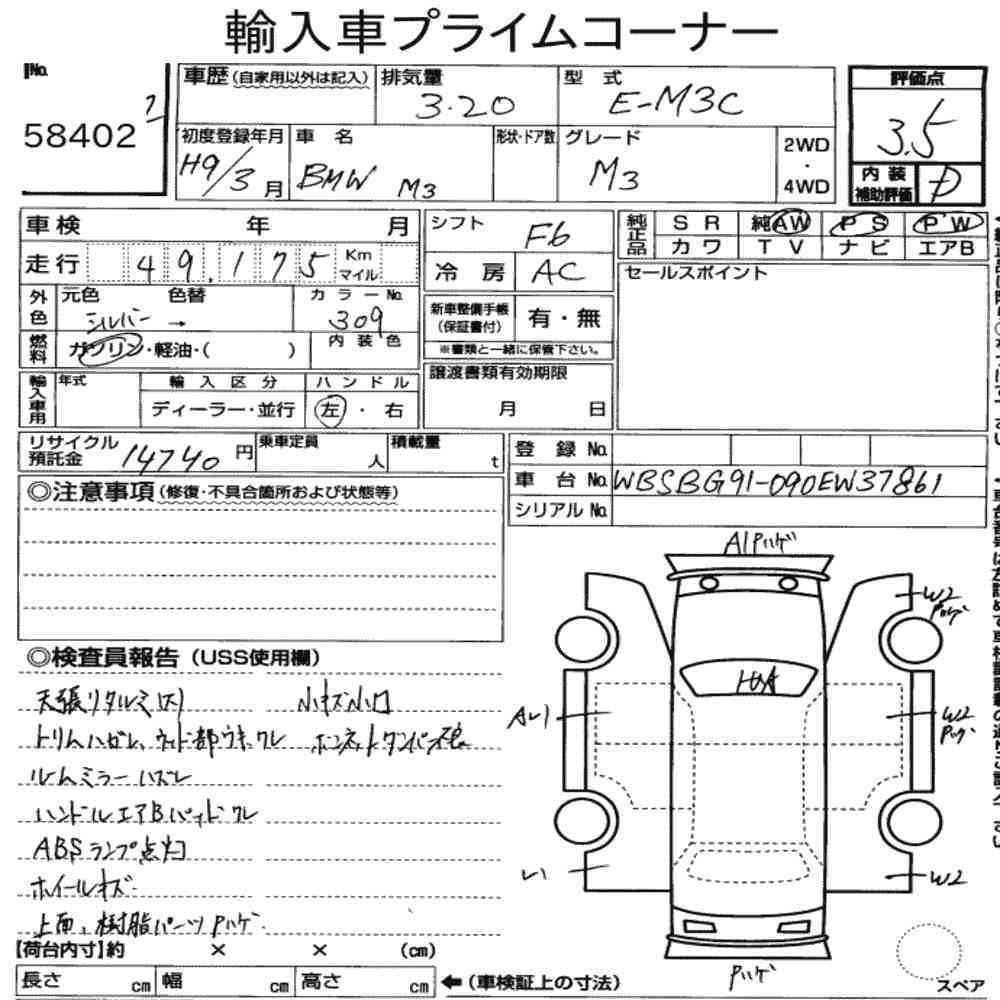 輸入車プライムコーナー
No.
58402 2
車歴(自家用以外は記入) 排気量 型 式
3.20 E-M3C
初度登録年月 車 名 形状・ドア数 グレード
H9/3月 BMW M3 M3
2WD
・
4WD
評価点
3.5
内装
補助評価 D
車検 年 月
走行 49,175 Km
マイル
外色 元色 色替 カラーNo.
シルバー → 309
燃料 ガソリン・軽油・( ) 内装色
輸入車用 年式 輸入区分 ハンドル
ディーラー・並行 左・右
シフト F6
冷房 AC
新車整備手帳
(保証書付) 有・無
※書類と一緒に保管下さい。
譲渡書類有効期限
月 日
純正品 SR 純AW PS PW
カワ TV ナビ エアB
セールスポイント
リサイクル
預託金 14740円 乗車定員 人 積載量 t
登録No.
車台No. WBSBG91-090EW37861
シリアルNo.
◎注意事項(修復・不具合箇所および状態等)
◎検査員報告(USS使用欄)
天張リタルミ(大) 小キズ小凹
トリムハガレ、ウッド部ウキ、ワレ
ルームミラーハズレ
ハンドルエアBパッドワレ
ABSランプ点灯
ホイールキズ
上面、樹脂パーツPハゲ
A1Pハゲ
W2
Pハゲ
W2
Pハゲ
W2
Pハゲ
スペア
【荷台内寸】約 × × (cm)
長さ cm 幅 cm 高さ cm ←(車検証上の寸法)